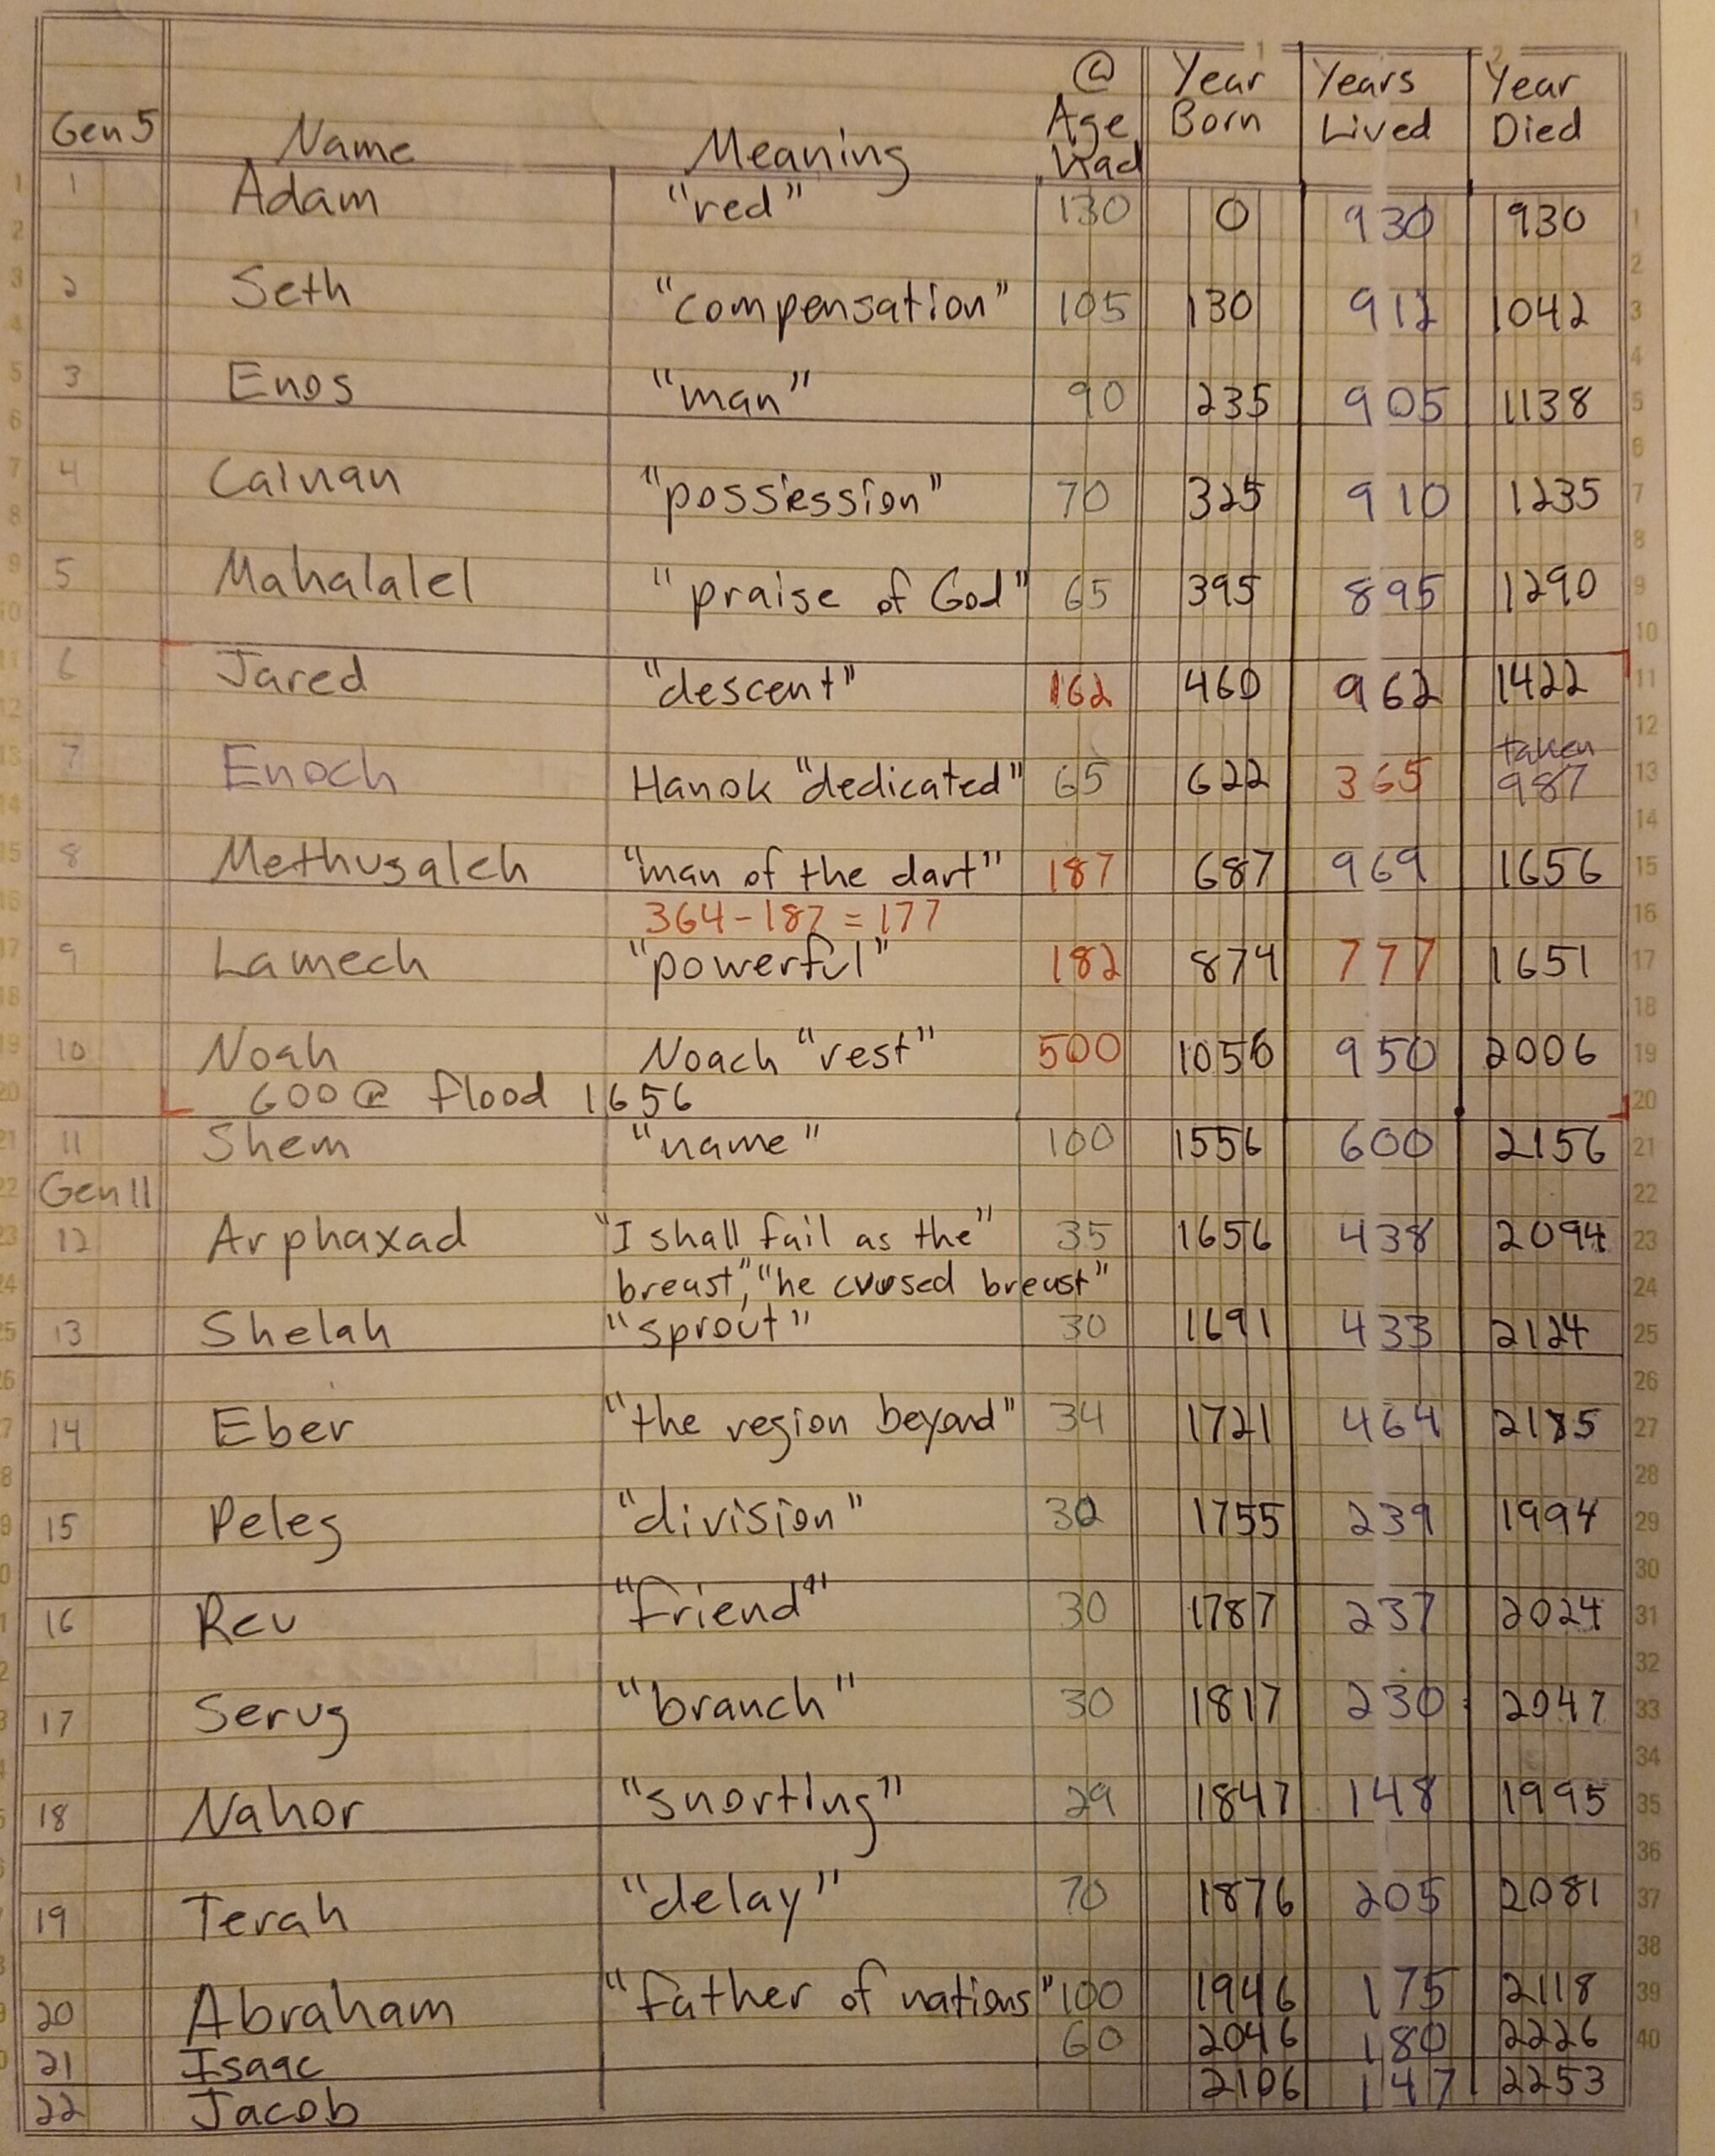 Gen 5 Name Meaning @ Age Had Year Born Years Lived Year Died
1 Adam "red" 130 0 930 930
2 Seth "compensation" 105 130 912 1042
3 Enos "man" 90 235 905 1138
4 Cainan "possession" 70 325 910 1235
5 Mahalalel "praise of God" 65 395 895 1290
6 Jared "descent" 162 460 962 1422
7 Enoch Hanok "dedicated" 65 622 365 taken 987
8 Methusaleh "man of the dart" 187 687 969 1656
364-187=177
9 Lamech "powerful" 182 874 777 1651
10 Noah Noach "rest" 500 1056 950 2006
600 @ flood 1656
11 Shem "name" 100 1556 600 2156
Gen 11
12 Arphaxad "I shall fail as the" 35 1656 438 2094
breast", "he cursed breast"
13 Shelah "sprout" 30 1691 433 2124
14 Eber "the region beyond" 34 1721 464 2185
15 Peleg "division" 32 1755 239 1994
16 Reu "friend" 30 1787 237 2024
17 Serug "branch" 30 1817 230 2047
18 Nahor "snorting" 29 1847 148 1995
19 Terah "delay" 70 1876 205 2081
20 Abraham "father of nations" 100 1946 175 2118
21 Isaac 60 2046 180 2226
22 Jacob 2106 147 2253